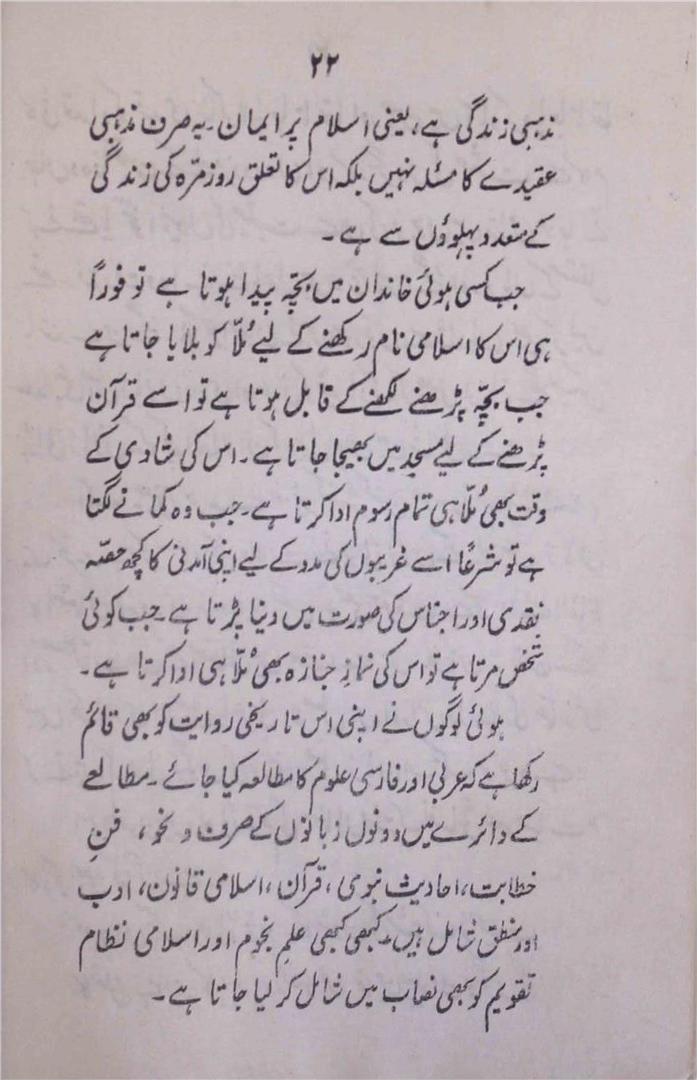 ۲۲
مذہبی زندگی ہے، یعنی اسلام پر ایمان۔ یہ صرف مذہبی
عقیدے کا مسئلہ نہیں بلکہ اس کا تعلق روزمرّہ کی زندگی
کے متعدد پہلوؤں سے ہے۔
جب کسی ہوئی خاندان میں بچّہ پیدا ہوتا ہے تو فوراً
ہی اس کا اسلامی نام رکھنے کے لیے مُلّا کو بلایا جاتا ہے
جب بچّہ پڑھنے لکھنے کے قابل ہوتا ہے تو اسے قرآن
پڑھنے کے لیے مسجد میں بھیجا جاتا ہے۔ اس کی شادی کے
وقت بھی مُلّا ہی تمام رسوم ادا کرتا ہے۔ جب وہ کمانے لگتا
ہے تو شرعاً اسے غریبوں کی مدد کے لیے اپنی آمدنی کا کچھ حصّہ
نقدی اور اجناس کی صورت میں دینا پڑتا ہے۔ جب کوئی
شخص مرتا ہے تو اس کی نمازِ جنازہ بھی مُلّا ہی ادا کرتا ہے۔
ہوئی لوگوں نے اپنی اس تاریخی روایت کو بھی قائم
رکھا ہے کہ عربی اور فارسی علوم کا مطالعہ کیا جائے۔ مطالعے
کے دائرے میں دونوں زبانوں کے صرف و نحو، فنِ
خطابت، احادیث نبوی، قرآن، اسلامی قانون، ادب
اور منطق شامل ہیں۔ کبھی کبھی علمِ نجوم اور اسلامی نظام
تقویم کو بھی نصاب میں شامل کر لیا جاتا ہے۔